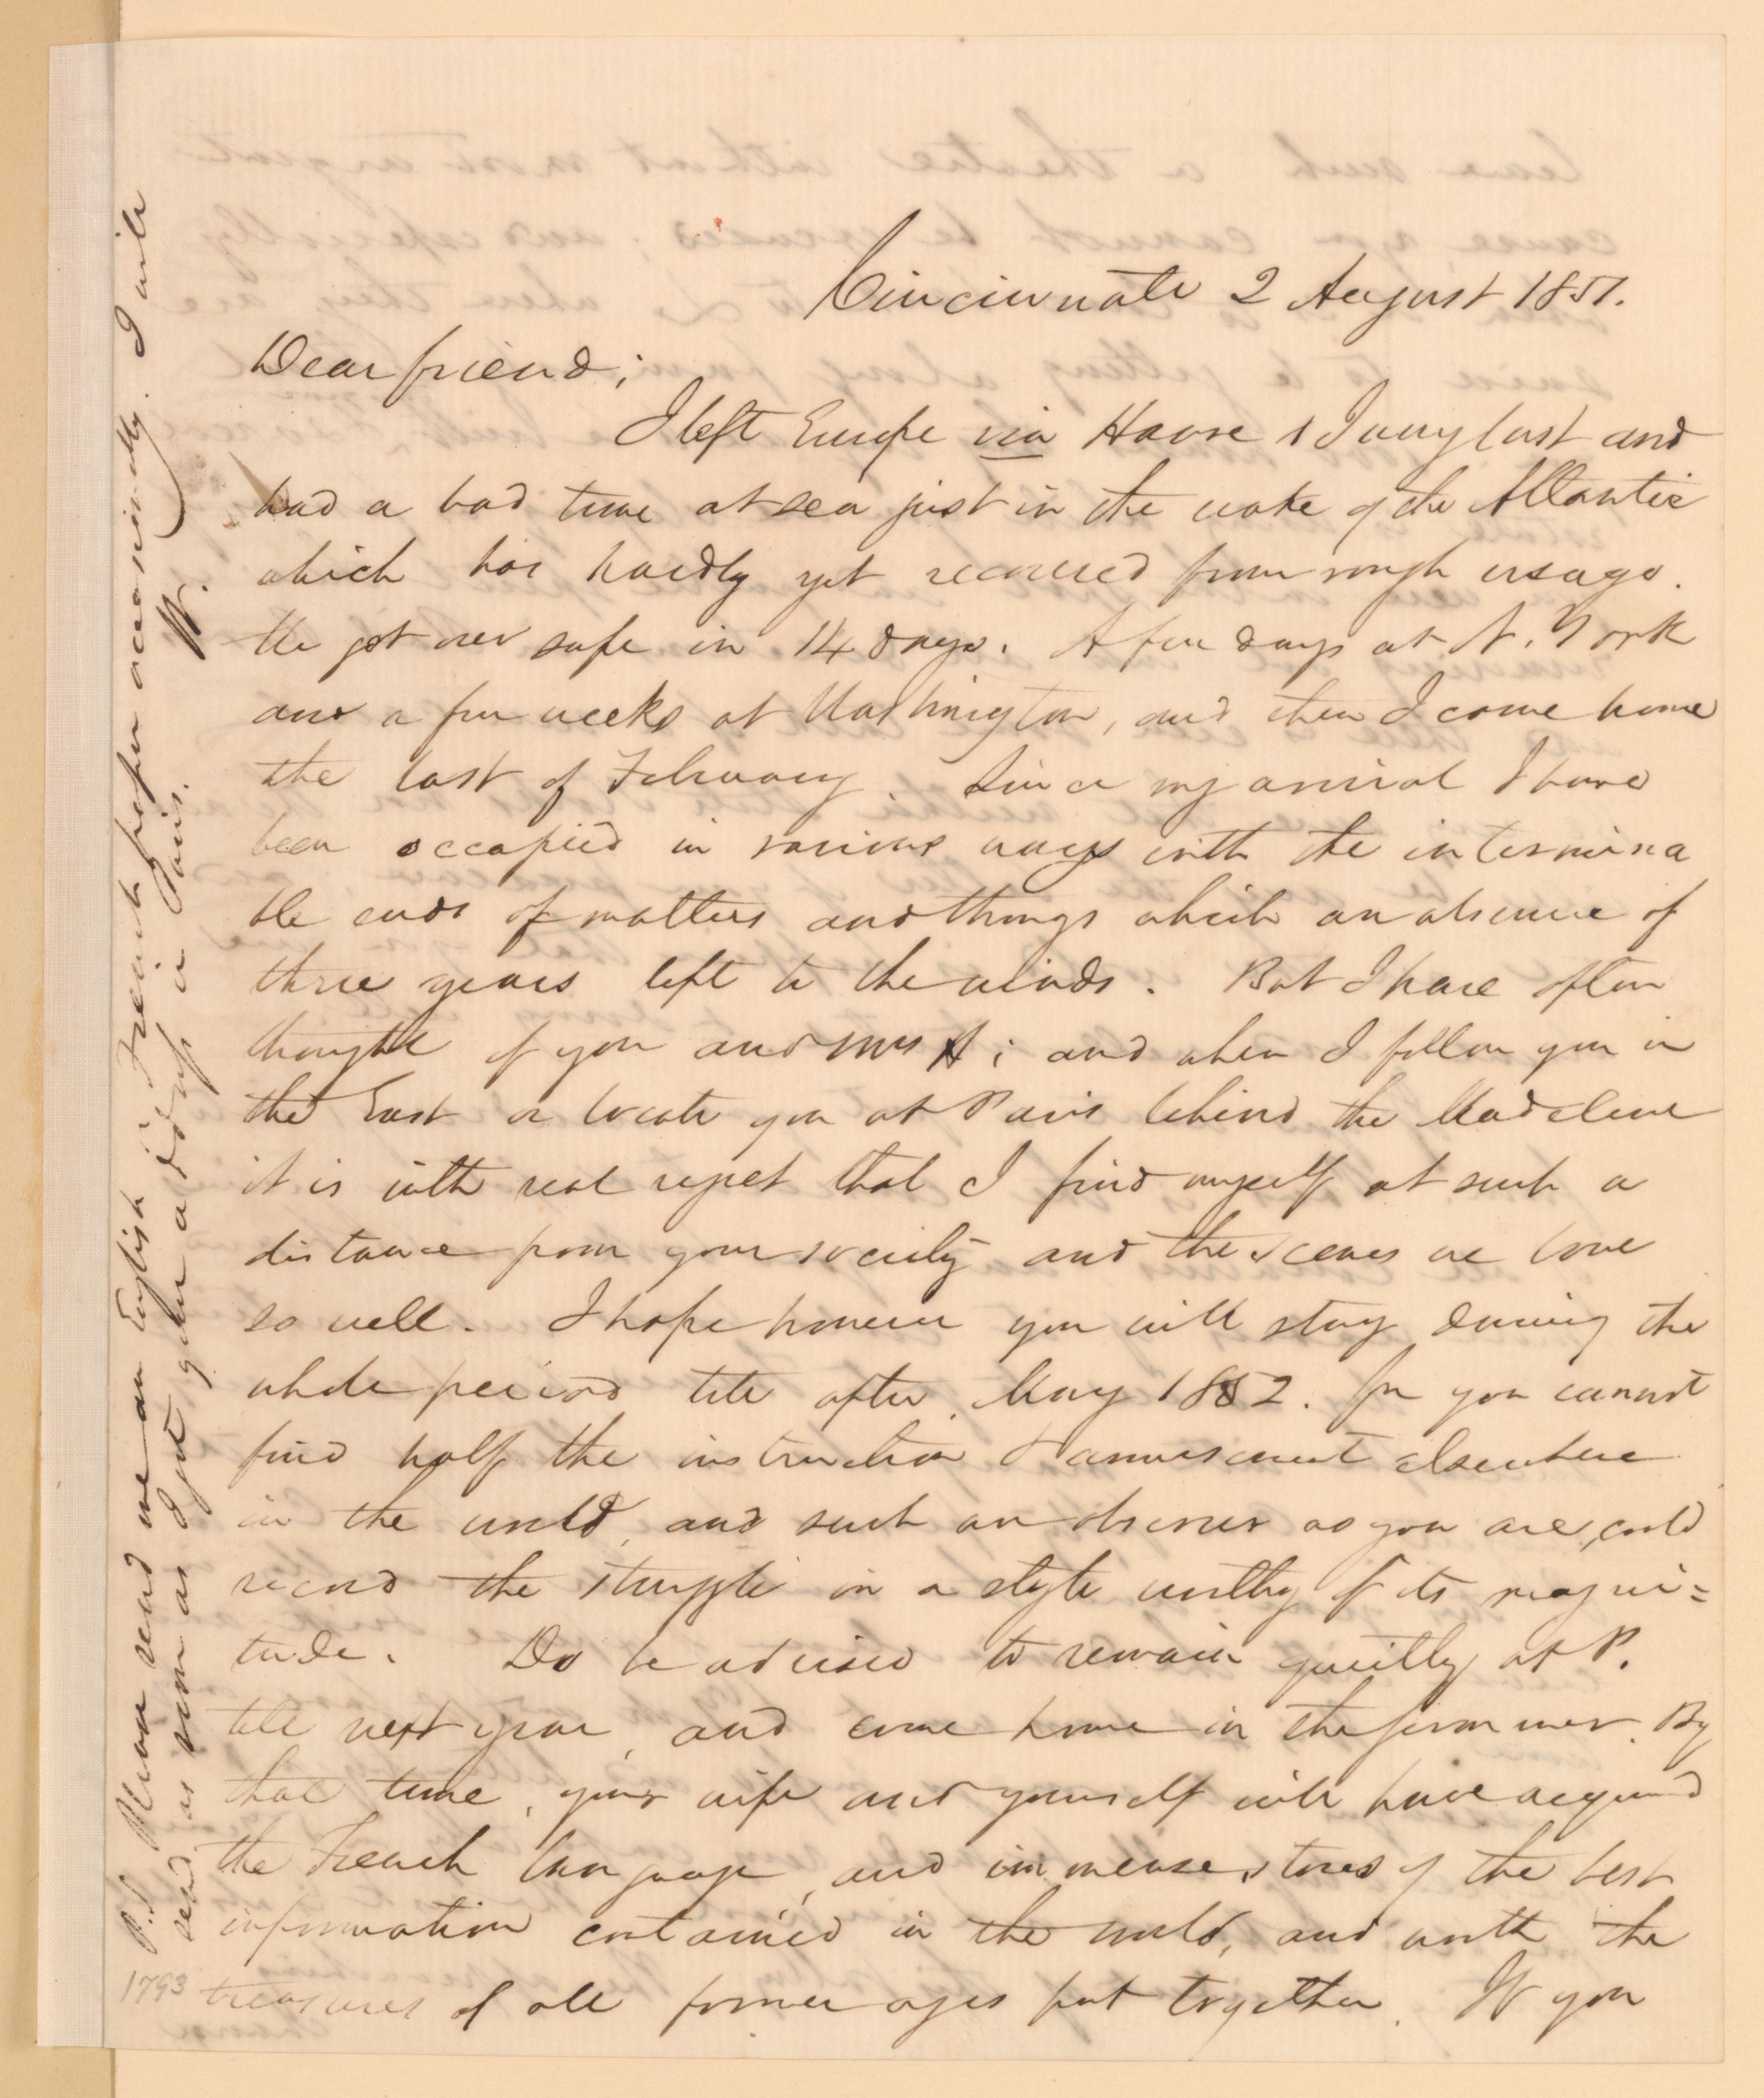 Cincinnati 2 August 1851.
Dear friend;
I left Europe via Havre 1 Jany last and
had a bad time at sea just in the wake of the Atlantic
which has hardly yet recovered from rough usage.
We got over safe in 14 days. A few days at N. York
and a few weeks at Washington, and then I come home
the last of February. Since my arrival I have
been occupied in various ways with the intermina
ble ends of matters and things which an absence of
three years left to the winds. But I have often
thought of you and Mrs A; and when I follow you in
the East or locate you at Paris behind the Madeleine
it is with real regret that I find myself at such a
distance from your society and the scenes we love
so well. I hope however you will stay during the
whole period till after May 1852. for you cannot
find half the instruction & amusement elsewhere
in the world, and such an observer as you are, could
record the struggle in a style worthy of its magni=
tude. Do be advised to remain quietly at P.
till next year, and come home in the summer. By
that time, your wife and yourself will have acquired
the French language, and immense stores of the best
information contained in the world, and worth the
treasures of all former ages put together. If you
P.S. Please send me an English & French paper occasionally. I will
send as soon as I get your address in Paris.
W.
1793